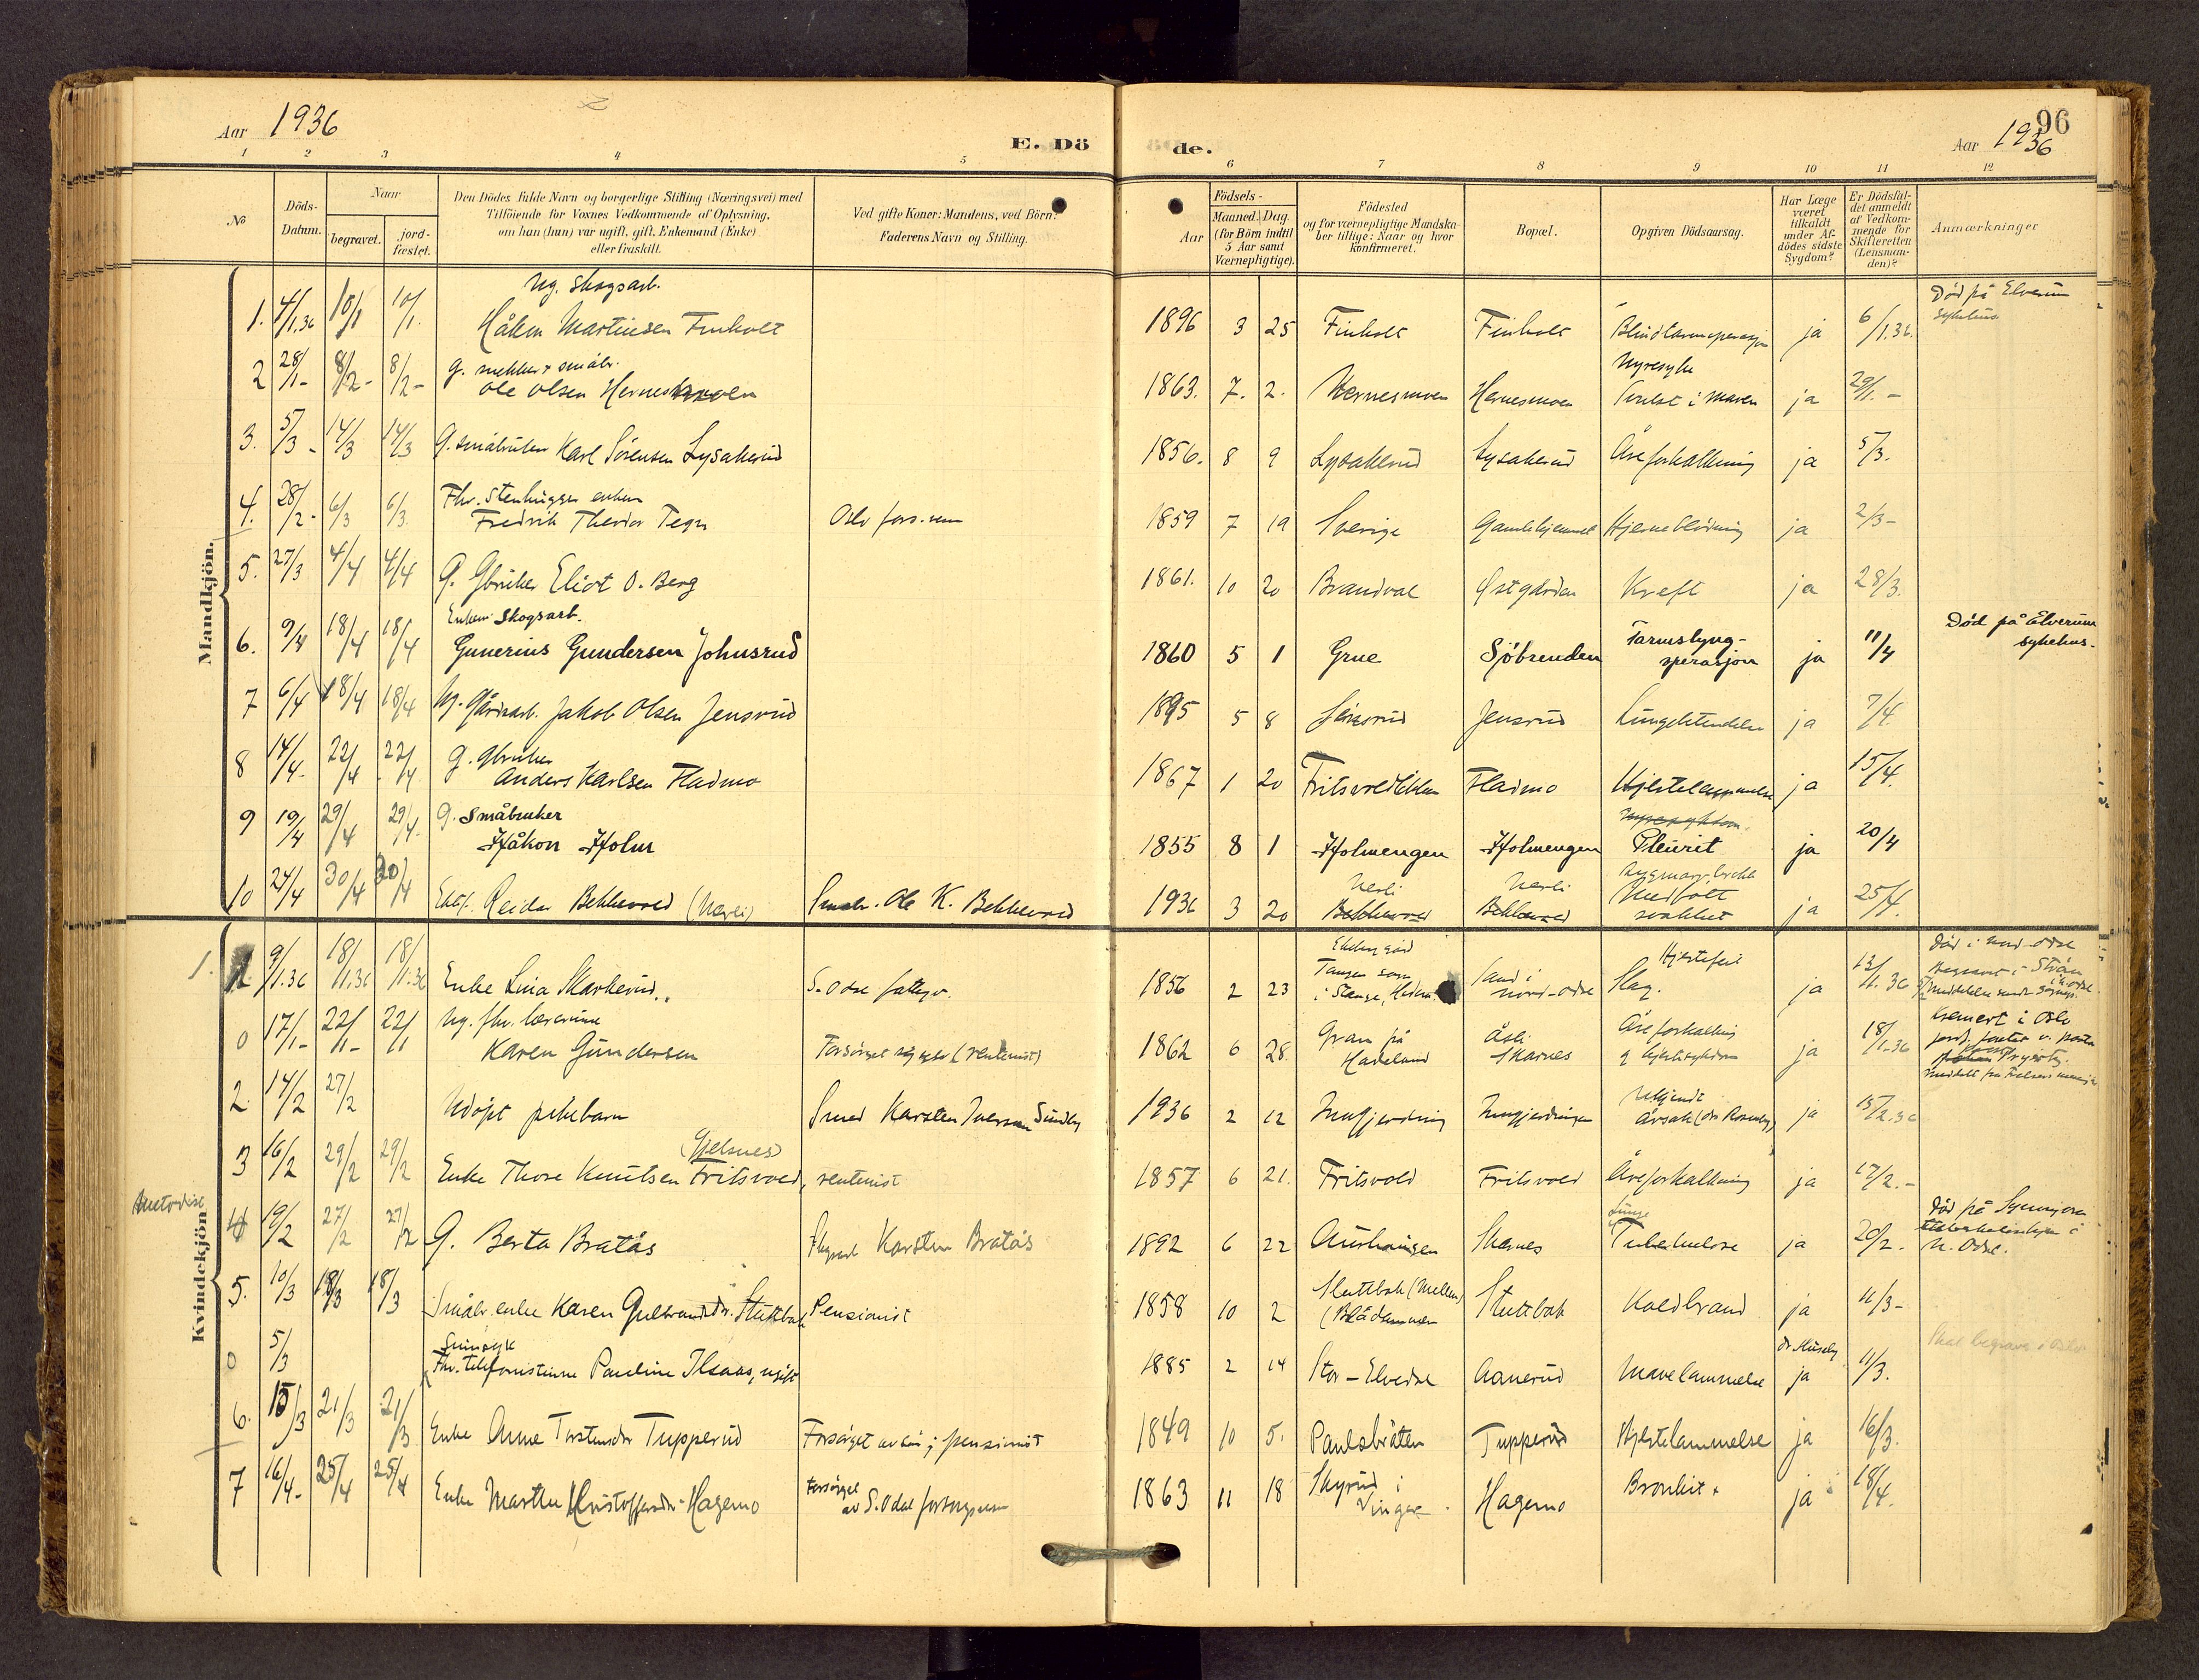 Aar 1936
E. Dö
de.
96
Aar 1936
1 2 3 4 5 6 7 8 9 10 11 12
No
Döds-Datum.
Naar
begravet.
jord-fæstet.
Den Dödes fulde Navn og borgerlige Stilling (Næringsvei) med
Tilföiende for Voxnes Vedkommende af Oplysning,
om han (hun) var ugift, gift, Enkemand (Enke)
eller fraskilt.
Ved gifte Koner: Mandens, ved Börn:
Faderens Navn og Stilling.
Födsels-
Aar
Maaned. Dag.
(for Börn indtil
5 Aar samt
Værnepligtige).
Födested
og for værnepligtige Mandska-
ber tillige: Naar og hvor
konfirmeret.
Bopæl.
Opgiven Dödsaarsag.
Har Læge
været
tilkaldt
under Af-
dödes sidste
Sygdom?
Er Dödsfal-
det anmeldt
af Vedkom-
mende for
Skifteretten
(Lensman-
den)?
Anmærkninger
Mandkjön.
Ug. skogsarb.
1. 4/1.36 10/1 10/1. Håken Martinsen Finholt 1896 3 25 Finholt Finholt Blindtarmoperasjon ja 6/1.36. Död på Elverum sykehus.
g. snekker & småbr. Nyresyke
2 28/1- 8/2- 8/2- Ole Olsen Hernesmoen 1863. 7. 2. Hernesmoen Hernesmoen i maven ja 29/1.-
3. 5/3- 14/3 14/3 G. småbruker Karl Sörensen Lysakerud 1856. 8 9 Lysakerud Lysakerud Åreforkalkning ja 5/3.
Fhv. Stenhugger enkem
4. 28/2- 6/3 6/3. Fredrik Theodor Oslo fors.vem 1859 7 19 Sverige Gamlehjemmet Hjerneblödning ja 2/3-
5. 27/3 4/4 4/4 G. Gbruker Eliot O. Berg 1861. 10 20 Brandval Østgården Kreft ja 28/3.
Enkem. Skogsarb.
6. 9/4 18/4 18/4 Gunerius Gundersen Johnsrud 1860 5 1 Grue Sjöbrenden Tarmslyng-operasjon ja 11/4 Død på Elverum sykehus.
7 6/4 18/4 18/4 Ug. Gårdsarb. Jakob Olsen Jensrud 1895 5 8 Jensrud Jensrud Lungebetendelse ja 7/4.
g. gbruker
8 14/4- 22/4 22/4 Anders Karlsen Fladmo 1867 1 20 Fritsvold Fladmo Hjertelammelse ja 15/4.
G. Småbruker
9 19/4 29/4 29/4 Håkon Holm 1855 8 1 Holmengen Holmengen Pleurit ja 20/4
Nerli Nerli
10 24/4 30/4 30/4 Ekt.f. Reidar Bekkevold (Nerli) Småbr. Ole K. Bekkevold 1936 3 20 Bekkevold Bekkevold Medfött svakhet ja 25/4.
Kvindekjön.
1. 9/1.36 18/1.36 18/1.36 Enke Lina Skarkerud. S. Odal fattigv. 1856 2 23 Tangen som i Stange, Hedm. Sand i nord-odal Hjertefeil Slag. ja 13/1.36 Död i nord-odal
Ug. fhv. lærerinne
0 17/1- 22/1- 22/1 Karen Gundersen Forsörget sig selv (rentenist) 1862 6 28. Gran på Hadeland Åsli Skarnes Åreforkalkning & hjertesykdom ja 18/1-36 kremert i Oslo
2. 14/2 27/2 Udöpt pikebarn Smed Karsten Iversen Sundby 1936 2 12 ukjendt årsak (dr Rosenberg) ja 15/2.36
(Gjelsnes)
3 16/2 29/2 29/2 Enke Thore Knutsen Fritsvold, rentenist 1857 6 21. Fritsvold Fritsvold Åreforkalkning ja 17/2.-
Metodist
4 19/2 27/2 27/2 G. Berta Bratås Karsten Bratås 1892 6 22 Skarnes Lunge Tuberkulose ja 20/2. död på i N. Odal.
5. 10/3 18/3 18/3 Småbr. enke Karen Gulbrandsdr. Stuttbak Pensionist 1858 10 2 Stuttbak (Mellem) Stuttbak Koldbrand ja 11/3-
Sinnsyk dr Museby
0 5/3 Fhv. telefonistinne Pauline Ilsaas, ugift 1885 2 14 Stor-Elvedal Aanerud Mavelammelse ja 11/3. Skal begraves i Oslo
6. 15/3 21/3 21/3 Enke Anne Torstensdr Tupperud Forsörget av ; pensionist 1849 10 5. Paulsbråten Tupperud Hjertelammelse ja 16/3.
7 16/4- 25/4 25/4 Enke Marthe Kristoffersdr. Hagemo Forsörget av S. Odal forsorgsvesen 1863 11 18 Skyrud i Vinger Hagemo Bronkit ja 18/4.